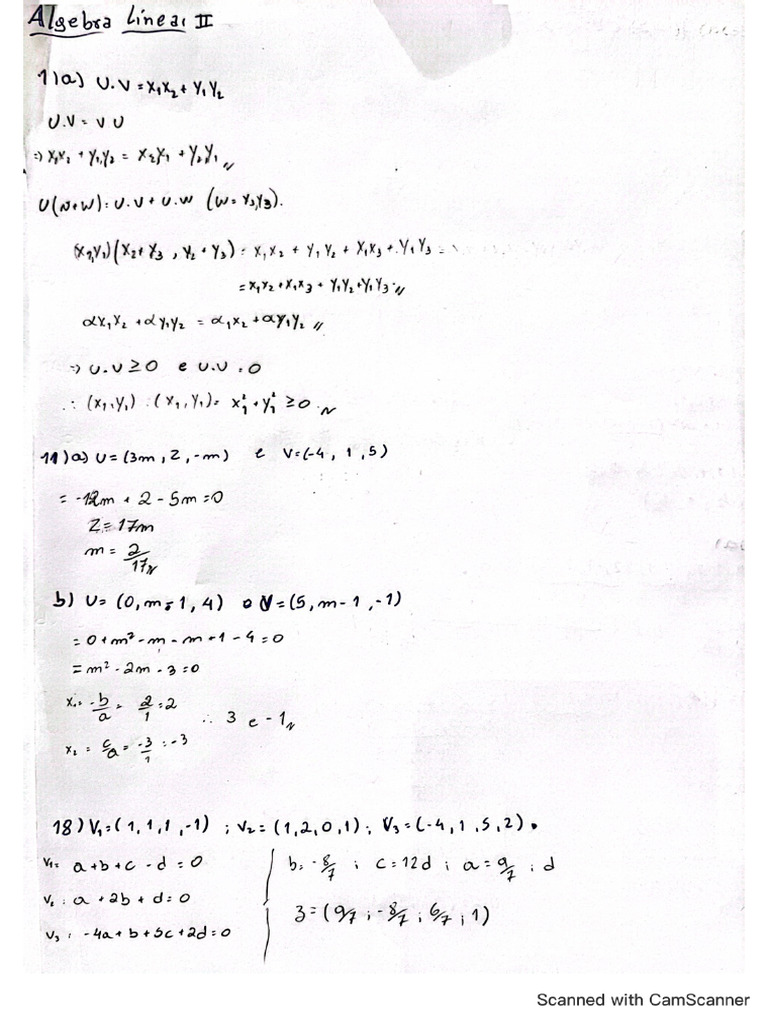 Algebra Linear II
1)a) U.V = X₁X₂ + Y₁Y₂
U.V = V U
=> X₁X₂ + Y₁Y₂ = X₂X₁ + Y₂Y₁ //
U(N+W) : U.V + U.W (W = Y₃Y₃).
(X₁,Y₁)(X₂+X₃ , Y₂+Y₃) = X₁X₂ + Y₁Y₂ + X₁X₃ + Y₁Y₃
= X₁X₂ + X₁X₃ + Y₁Y₂ + Y₁Y₃ //
αX₁X₂ + αY₁Y₂ = α₁X₂ + αY₁Y₂ //
=> U.U ≥ 0 e U.U = 0
∴ (X₁,Y₁) . (X₁,Y₁) = X₁² + Y₁² ≥ 0 //
11)a) U = (3m, 2, -m) e V = (-4, 1, 5)
= -12m + 2 - 5m = 0
2 = 17m
m = 2/17 //
b) U = (0, m-1, 4) e V = (5, m-1, -1)
= 0 + m² - m - m + 1 - 4 = 0
= m² - 2m - 3 = 0
X₁ = -b/a = 2/1 = 2
∴ 3 e -1 //
X₂ = c/a = -3/1 = -3
18) V₁ = (1, 1, 1, -1) ; V₂ = (1, 2, 0, 1) ; V₃ = (-4, 1, 5, 2).
V₁ = a + b + c - d = 0 b = -8/7 ; c = 12d ; a = 9/7 ; d
V₂ : a + 2b + d = 0
3 = (9/7 ; -8/7 ; 6/7 ; 1)
V₃ : -4a + b + 5c + 2d = 0
Scanned with CamScanner